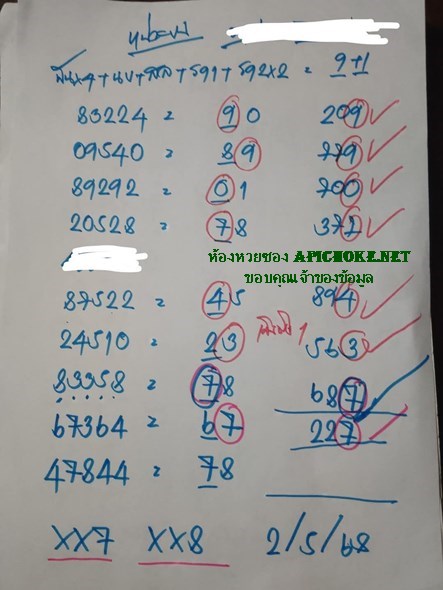 พันx4+นบ+สิล+รง1+รง2x2 = 9+1
83224 = 90 209
09540 = 89 779
89292 = 01 700
20528 = 78 371
ห้องหวยซอง APICHOKE.NET
ขอบคุณเจ้าของข้อมูล
87522 = 45 894
24510 = 23 1 563
83358 = 78 687
67364 = 67 227
47844 = 78
XX7 XX8 2/5/68